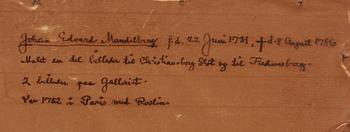 Johan Edvard Mandelberg f.d. 22 Juni 1731. † d. 8 August 1786
Malet en del billeder til Christiansborg Slot og til Fredensborg.
2 billeder paa Galleriet.
Var 1762 i Paris med Roslin.